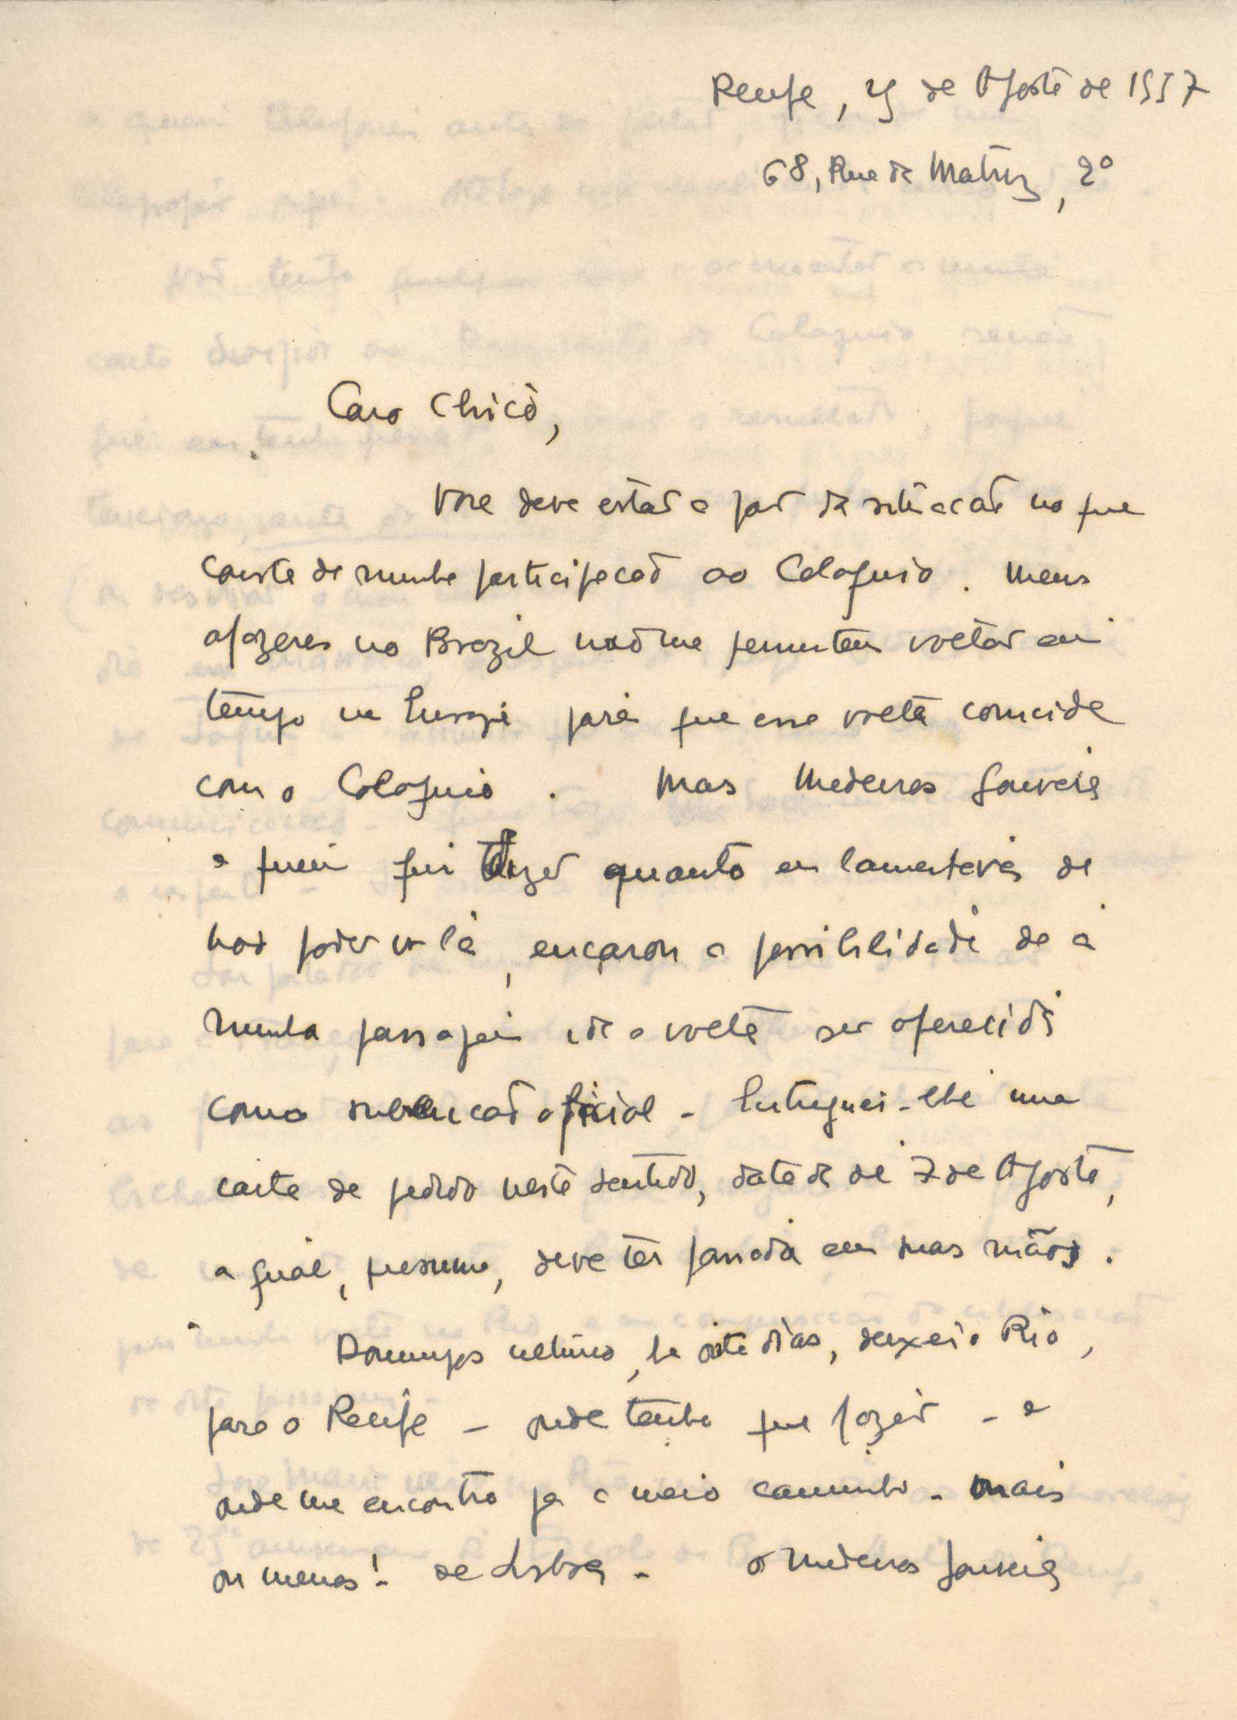 Recife, 25 de Agosto de 1957
68, Rua da Matriz, 2º
Caro Chicò,
Voce deve estar a par da situacaõ no que
conste de minha participacaõ ao Coloquio. Meus
afazeres no Brazil naõ me permitem voltar em
tempo na Europa para que essa volta coincida
com o Coloquio. Mas Medeiros Gouveia
a quem fui dizer quanto eu lamentava de
naõ poder ir là, encarou a possibilidade de a
minha passagem ida e volta ser oferecida
como oficial - Entreguei-lhe uma
carta de pedido neste sentido, datada de 7 de Agosto,
a qual, presumo, deve ter passada em suas mãos.
Domingo ultimo, ha oito dias, deixei o Rio,
para o Recife - onde tenho que fazer - e
onde me encontro ja a meio caminho - mais
ou menos! - de Lisboa - o Medeiros Gouveia